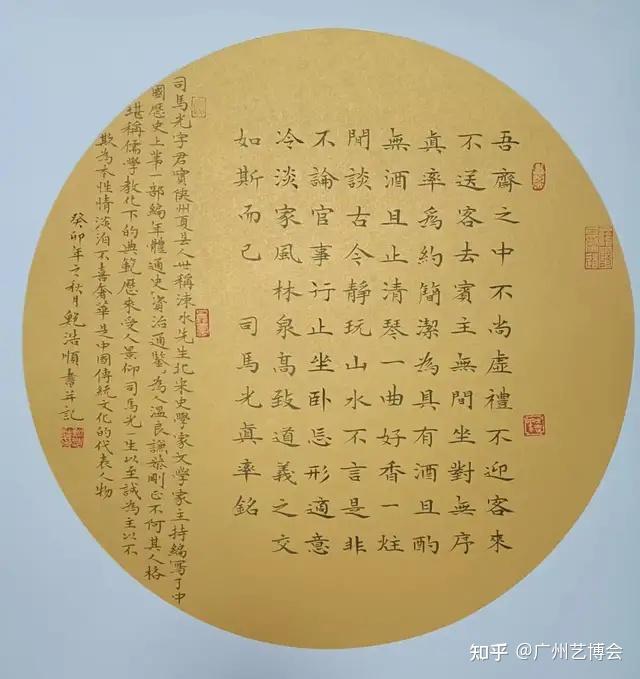 吾齋之中不尚虛禮不迎客來
不送客去賓主無間坐對無序
眞率爲約簡潔為具有酒且酌
無酒且止清琴一曲好香一炷
閒談古今靜玩山水不言是非
不論官事行止坐卧忘形適意
冷淡家風林泉高致道義之交
如斯而已 司馬光眞率銘
司馬光字君實陝州夏县人世稱涑水先生北宋史學家文學家主持編寫了中
國歷史上第一部編年體通史資治通鑒為人溫良謙恭剛正不阿其人格
堪稱儒學教化下的典範歷來受人景仰司馬光一生以至誠為主以不
欺為本性情淡泊不喜奢華是中國傳統文化的代表人物
癸卯年之秋月鮑浩順書并記
知乎 @广州艺博会